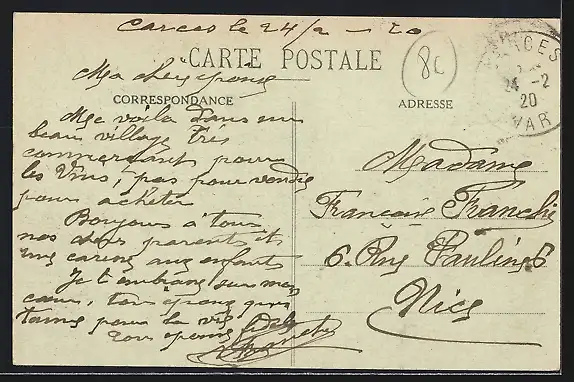 Carces le 24/2 - 20
CARTE POSTALE
8c
CARCES
24 -2
20
VAR
Ma chere epouse
CORRESPONDANCE
ADRESSE
Me voila dans un
beau village tres
commercant pour
les Vins, pas pour vendre
pour acheter
Bonjour a tous
nos chers parents et
une caresse aux enfants
Je t'embrasse sur mon
cœur, ton epoux qui
t'aime pour la vie
ton epoux
Madame
Françoise Franchi
6. Rue Pauline 6
Nice